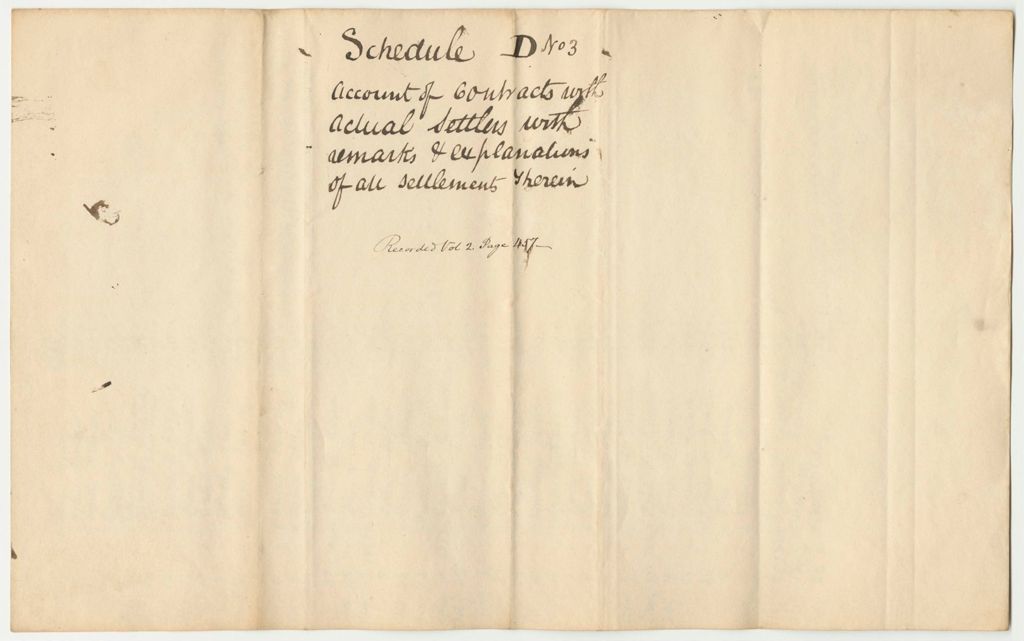 Schedule D No 3
Account of Contracts with
actual Settlers with
remarks & explanations
of all settlements therein
Recorded Vol 2. Page 457